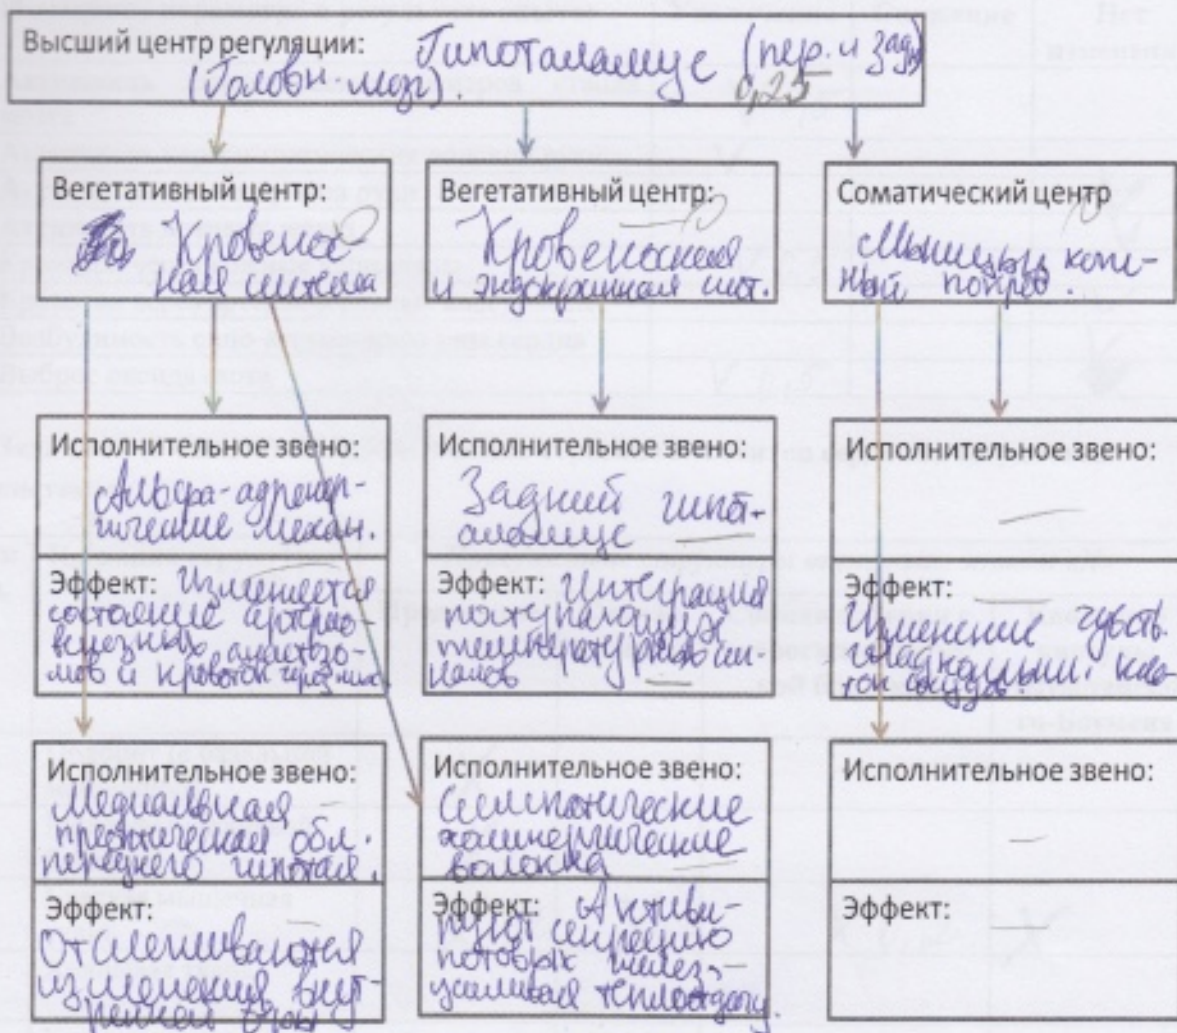 Высший центр регуляции: Гипоталамус (пер. и зад)
(Головн. мозг). 0,25
Вегетативный центр:
Кровенос-
ная система
Вегетативный центр:
Кровеносная
и эндокринная сист.
Соматический центр
Мышцы, кож-
ный покров.
Исполнительное звено:
Альфа-адренер-
гические механ.
Эффект: Изменяется
состояние артерио-
венозных анастозо-
мов и кровоток
Исполнительное звено:
Задний гипот-
аламус
Эффект: Интеграция
поступающих
температурных сиг-
налов
Исполнительное звено:
Эффект:
Изменение чувств.
гладкомыш. кле-
ток сосудов.
Исполнительное звено:
Медиальная
преоптическая обл.
переднего гипотал.
Эффект:
Отслеживаются
изменения внут-
ренней среды
Исполнительное звено:
Симпатические
холинергические
волокна
Эффект: Активи-
руют секрецию
потовых желез,
усиливая теплоотдачу.
Исполнительное звено:
Эффект: